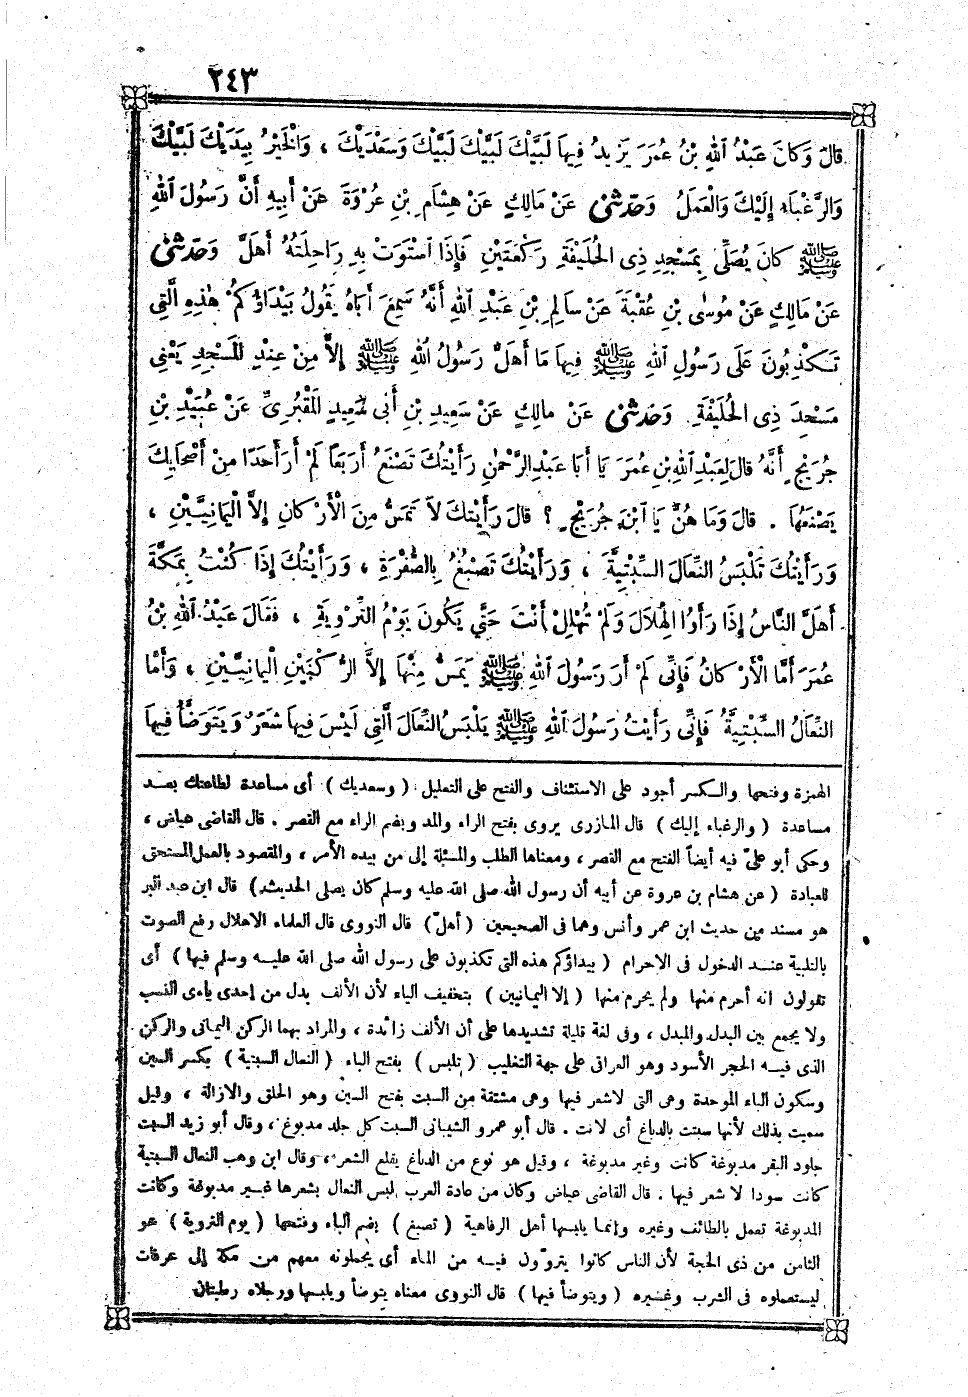 ٢٤٣
قَالَ وَكَانَ عَبْدُ اللهِ بْنُ عُمَرَ يَزِيدُ فِيهَا لَبَّيْكَ لَبَّيْكَ لَبَّيْكَ وَسَعْدَيْكَ ، وَالْخَيْرُ بِيَدَيْكَ لَبَّيْكَ
وَالرَّغْبَاءُ إِلَيْكَ وَالْعَمَلُ وَحَدَّثَنِى عَنْ مَالِكٍ عَنْ هِشَامِ بْنِ عُرْوَةَ عَنْ أَبِيهِ أَنَّ رَسُولَ اللهِ
ﷺ كَانَ يُصَلِّى بِمَسْجِدِ ذِى الْحُلَيْفَةِ رَكْعَتَيْنِ فَإِذَا اسْتَوَتْ بِهِ رَاحِلَتُهُ أَهَلَّ وَحَدَّثَنِى
عَنْ مَالِكٍ عَنْ مُوسَى بْنِ عُقْبَةَ عَنْ سَالِمِ بْنِ عَبْدِ اللهِ أَنَّهُ سَمِعَ أَبَاهُ يَقُولُ بَيْدَاؤُكُمْ هٰذِهِ الَّتِى
تَكْذِبُونَ عَلَى رَسُولِ اللهِ ﷺ فِيهَا مَا أَهَلَّ رَسُولُ اللهِ ﷺ إِلاَّ مِنْ عِنْدِ الْمَسْجِدِ يَعْنِى
مَسْجِدَ ذِى الْحُلَيْفَةِ. وَحَدَّثَنِى عَنْ مالِكٍ عَنْ سَعِيدِ بْنِ أَبِى سَعِيدٍ الْمَقْبُرِىِّ عَنْ عُبَيْدِ بْنِ
جُرَيْجٍ أَنَّهُ قَالَ لِعَبْدِ اللهِ بْنِ عُمَرَ يَا أَبَا عَبْدِ الرَّحْمٰنِ رَأَيْتُكَ تَصْنَعُ أَرْبَعًا لَمْ أَرَ أَحَدًا مِنْ أَصْحَابِكَ
يَصْنَعُهَا . قالَ وَمَا هُنَّ يَا ابْنَ جُرَيْجٍ ؟ قالَ رَأَيْتُكَ لاَ تَمَسُّ مِنَ الْأَرْكَانِ إِلاَّ الْيَمَانِيَّيْنِ ،
وَرَأَيْتُكَ تَلْبَسُ النِّعَالَ السِّبْتِيَّةَ ، وَرَأَيْتُكَ تَصْبُغُ بِالصُّفْرَةِ ، وَرَأَيْتُكَ إِذَا كُنْتَ بِمَكَّةَ
أَهَلَّ النَّاسُ إِذَا رَأَوُا الْهِلَالَ وَلَمْ تُهْلِلْ أَنْتَ حَتَّى يَكُونَ يَوْمُ التَّرْوِيَةِ ، فَقَالَ عَبْدُ اللهِ بْنُ
عُمَرَ أَمَّا الْأَرْكَانُ فَإِنِّى لَمْ أَرَ رَسُولَ اللهِ ﷺ يَمَسُّ مِنْهَا إِلاَّ الرُّكْنَيْنِ الْيَمانِيَّيْنِ ، وَأَمَّا
النِّعَالُ السِّبْتِيَّةُ فَإِنِّى رَأَيْتُ رَسُولَ اللهِ ﷺ يَلْبَسُ النِّعَالَ الَّتِى لَيْسَ فِيهَا شَعَرٌ وَيَتَوَضَّأُ فِيهَا
الهمزة وفتحها والكسر أجود على الاستئناف والفتح على التعليل (وسعديك) أى مساعدة لطاعتك بعد
مساعدة (والرغباء إليك) قال المازرى يروى بفتح الراء والمد وبضم الراء مع القصر . قال القاضى عياض ،
وحكى أبو علىّ فيه أيضاً الفتح مع القصر ، ومعناها الطلب والمسئلة إلى من بيده الأمر ، والمقصود بالعمل المستحق
للعبادة (عن هشام بن عروة عن أبيه أن رسول الله صلى الله عليه وسلم كان يصلى الحديث) قال ابن عبد البر
هو مسند من حديث ابن عمر وأنس وهما فى الصحيحين (أهلّ) قال النووى قال العلماء الاهلال رفع الصوت
بالتلبية عند الدخول فى الاحرام (بيداؤكم هذه التى تكذبون على رسول الله صلى الله عليه وسلم فيها) أى
تقولون انه أحرم منها ولم يحرم منها (إلا اليمانيين) بتخفيف الياء لأن الألف بدل من إحدى ياءى النسب
ولا يجمع بين البدل والمبدل ، وفى لغة قليلة تشديدها على أن الألف زائدة ، والمراد بهما الركن اليمانى والركن
الذى فيه الحجر الأسود وهو العراقى على جهة التغليب (تلبس) بفتح الباء (النعال السبتية) بكسر السين
وسكون الباء الموحدة وهى التى لاشعر فيها وهى مشتقة من السبت بفتح السين وهو الحلق والازالة ، وقيل
سميت بذلك لأنها سبتت بالدباغ أى لانت . قال أبو عمرو الشيبانى السبت كل جلد مدبوغ ، وقال أبو زيد السبت
جلود البقر مدبوغة كانت وغير مدبوغة ، وقيل هو نوع من الدباغ يقلع الشعر ، وقال ابن وهب النعال السبتية
كانت سودا لا شعر فيها . قال القاضى عياض وكان من عادة العرب لبس النعال بشعرها غير مدبوغة وكانت
المدبوغة تعمل بالطائف وغيره وإنما يلبسها أهل الرفاهية (تصبغ) بضم الباء وفتحها (يوم التروية) هو
الثامن من ذى الحجة لأن الناس كانوا يتروّون فيه من الماء أى يحملونه معهم من مكة إلى عرفات
ليستعملوه فى الشرب وغيره (ويتوضأ فيها) قال النووى معناه يتوضأ ويلبسها ورجلاه رطبتان